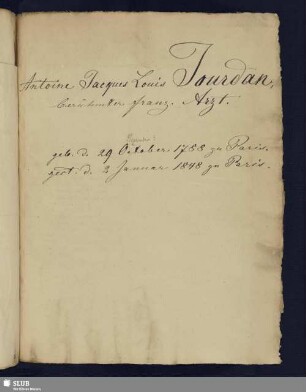 Antoine Jacques Louis Jourdan,
berühmter franz. Arzt.
geb. d. 29 October 1788 zu Paris.
gest. d. 2 Januar 1848 zu Paris.
SLUB
Wir führen Wissen.